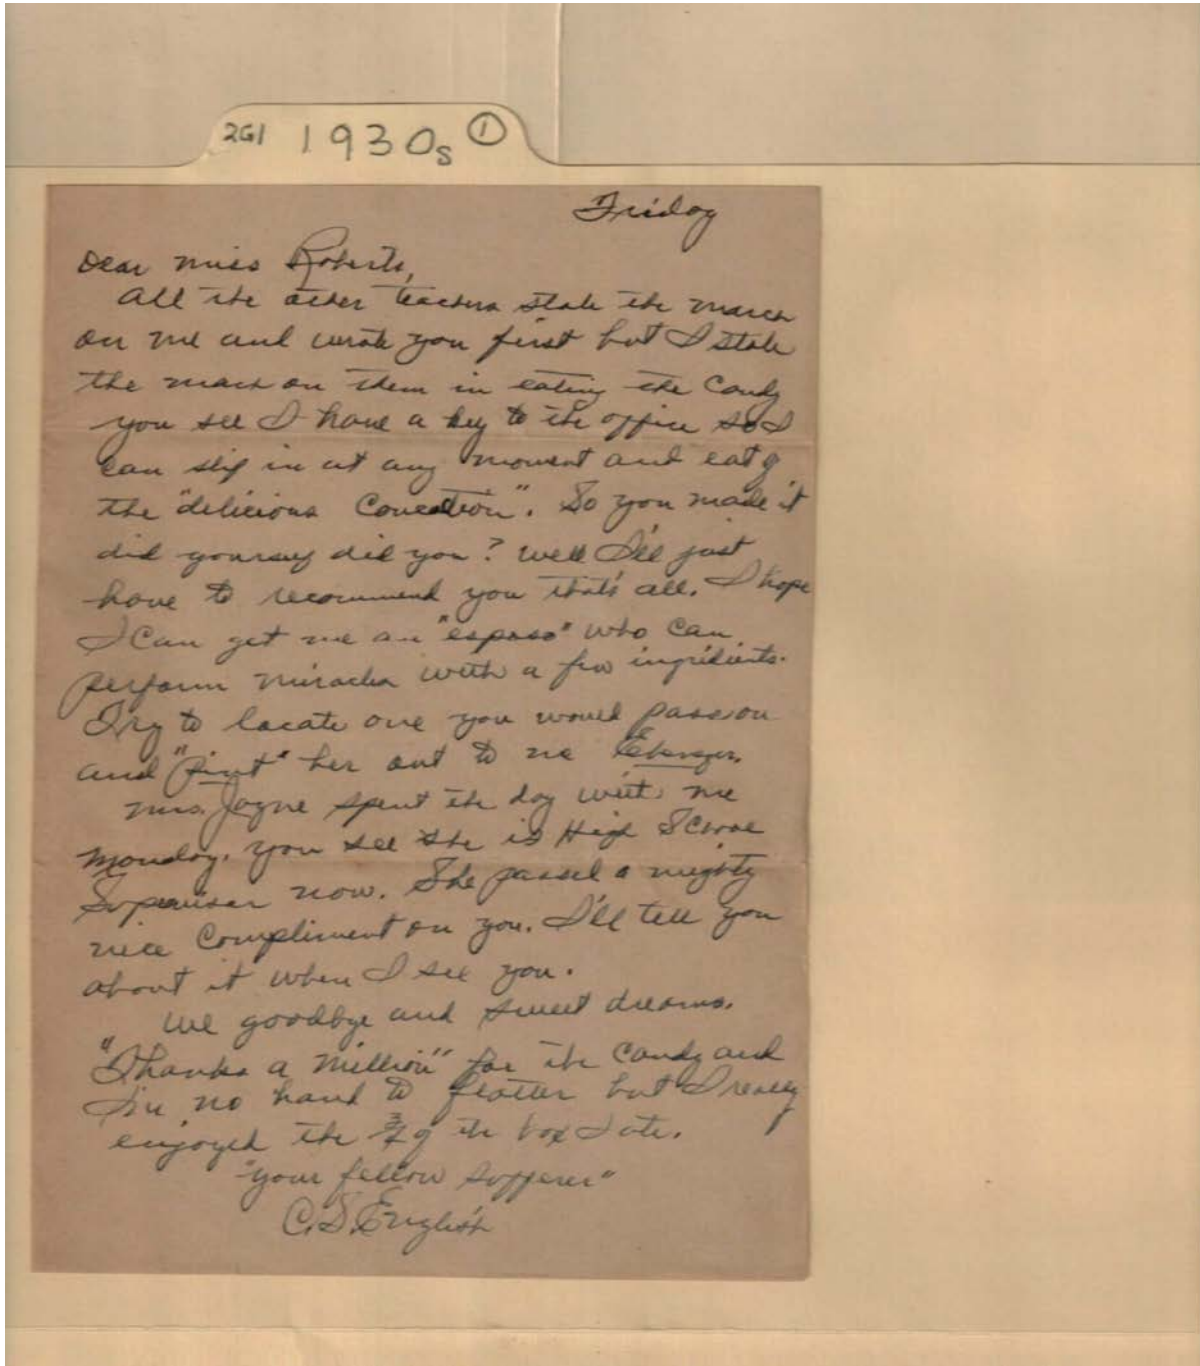 2G1 1930s 1
Friday
Dear Miss Roberts,
All the other teachers stole the march
on me and wrote you first but I stole
the march on them in eating the candy
you see I have a key to the office so I
can slip in at any moment and eat of
the "delicious concotion". So you made it
did you say did you? Well I'll just
have to recommend you that's all. I hope
I can get me an "esposo" who can
perform miracles with a few ingredients.
Try to locate one you would pass on
and "pint" her out to me
Mrs. Jayne spent the day with me
Monday. You see she is High School
Supervisor now. She passed a mighty
nice compliment on you. I'll tell you
about it when I see you.
We goodbye and sweet dreams.
"Thanks a million" for the candy and
I'm no hand to flatter but I really
enjoyed the 3/4 of the box I ate.
"your fellow sufferer"
C.S. English